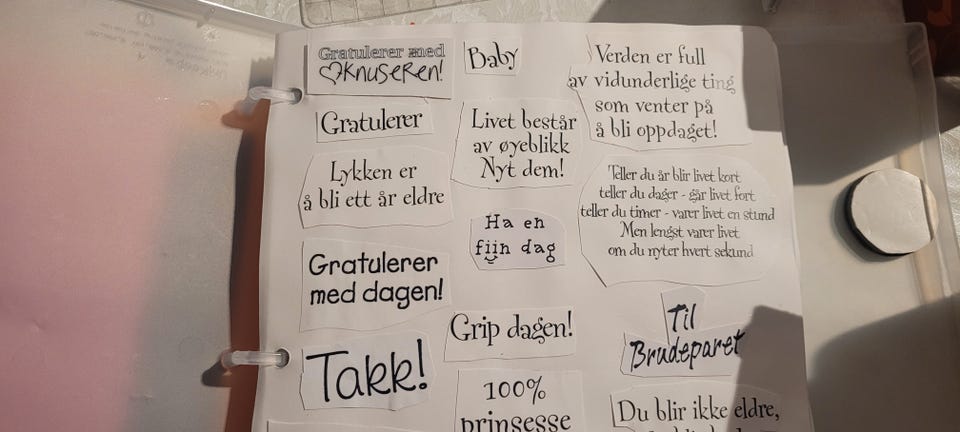 Gratulerer med
KNUSEREN!
Gratulerer
Lykken er
å bli ett år eldre
Gratulerer
med dagen!
Takk!
Baby
Livet består
av øyeblikk
Nyt dem!
Ha en
fiin dag
Grip dagen!
100%
prinsesse
Verden er full
av vidunderlige ting
som venter på
å bli oppdaget!
Teller du år blir livet kort
teller du dager - går livet fort
teller du timer - varer livet en stund
Men lengst varer livet
om du nyter hvert sekund
Til
Brudeparet
Du blir ikke eldre,